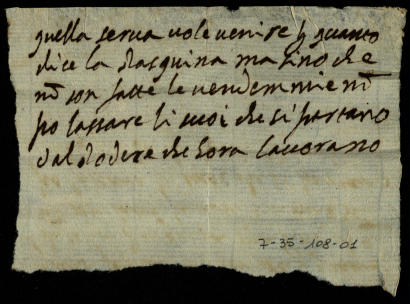 quella serua uole uenire p quanto
dice la Pasquina ma sino che e
nō son fatte le uendemmie nō
po lassare li suoi che si partano
dal Podere che hora lauorano
7-35-108-01